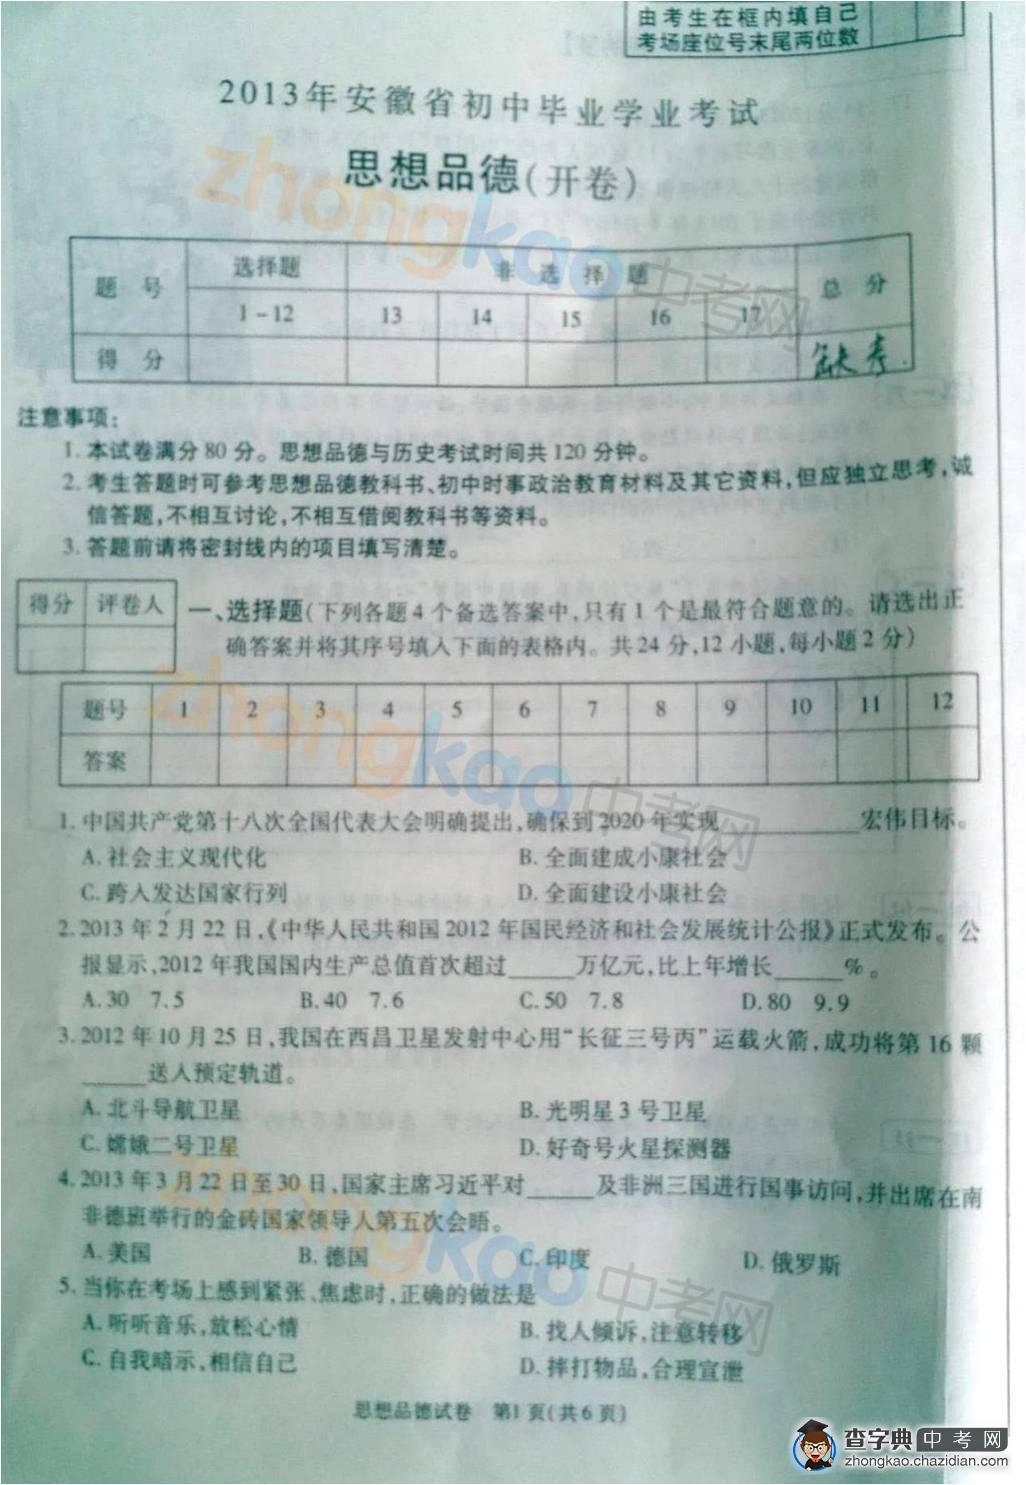 由考生在框内填自己
考场座位号末尾两位数
2013年安徽省初中毕业学业考试
思想品德(开卷)
题 号 选择题 非 选 择 题 总 分
1-12 13 14 15 16 17
得 分 缺考
注意事项:
1. 本试卷满分80分。思想品德与历史考试时间共120分钟。
2. 考生答题时可参考思想品德教科书、初中时事政治教育材料及其它资料,但应独立思考,诚
信答题,不相互讨论,不相互借阅教科书等资料。
3. 答题前请将密封线内的项目填写清楚。
得分 评卷人
一、选择题(下列各题4个备选答案中,只有1个是最符合题意的。请选出正
确答案并将其序号填入下面的表格内。共24分,12小题,每小题2分)
题号 1 2 3 4 5 6 7 8 9 10 11 12
答案
1. 中国共产党第十八次全国代表大会明确提出,确保到2020年实现______宏伟目标。
A. 社会主义现代化 B. 全面建成小康社会
C. 跨入发达国家行列 D. 全面建设小康社会
2. 2013年2月22日,《中华人民共和国2012年国民经济和社会发展统计公报》正式发布。公
报显示,2012年我国国内生产总值首次超过______万亿元,比上年增长______%。
A. 30 7.5 B. 40 7.6 C. 50 7.8 D. 80 9.9
3. 2012年10月25日,我国在西昌卫星发射中心用“长征三号丙”运载火箭,成功将第16颗
______送入预定轨道。
A. 北斗导航卫星 B. 光明星3号卫星
C. 嫦娥二号卫星 D. 好奇号火星探测器
4. 2013年3月22日至30日,国家主席习近平对______及非洲三国进行国事访问,并出席在南
非德班举行的金砖国家领导人第五次会晤。
A. 美国 B. 德国 C. 印度 D. 俄罗斯
5. 当你在考场上感到紧张、焦虑时,正确的做法是
A. 听听音乐,放松心情 B. 找人倾诉,注意转移
C. 自我暗示,相信自己 D. 摔打物品,合理宣泄
思想品德试卷 第1页(共6页)
zhongkao中考网
zhongkao中考网
zhongkao中考网
查字典中考网
zhongkao.chazidian.com